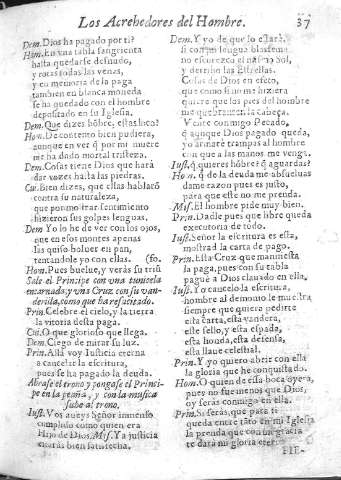 Los Acrehedores del Hombre. 37
Dem. Dios ha pagado por ti?
Hom. En vna tabla sangrienta
hasta quedarse desnudo,
y rotas todas las venas,
y en memoria de la paga
tambien en blanca moneda
se ha quedado con el hombre
depositado en su Iglesia,
Dem. Que dizes hõbre, estàs loco?
Hom. De contento bien pudiera,
aunque en ver q̃ por mi muere
me ha dado mortal tristeza.
Dem. Cosas tiene Dios que harà
dar vozes hasta las piedras.
Cui. Bien dizes, que ellas hablarõ
contra su naturaleza,
que para mostrar sentimiento
hizieron sus golpes lenguas.
Dem Yo lo he de ver con los ojos,
que en esos montes apenas
las quiso boluer en pan,
tentandole yo con ellas. (fo.
Hom. Pues buelue, y veràs su triũ
Sale el Principe con una tunicela
encarnada, y una Cruz con su van-
derilla, como que ha resucitado.
Prin. Celebre el cielo, y la tierra
la vitoria desta paga.
Cui. O que glorioso que llega.
Dem. Ciego de mirar su luz.
Prin. Allà voy Iusticia eterna
a cancelar la escritura,
pues se ha pagado la deuda.
Abrase el trono y pongase el Princi-
pe en la peaña, y con la musica
sube al trono.
Iust. Vos aueys Señor inmenso
cumplido como quien era
Hijo de Dios. Mis. Ya justicia
estaràs bien satisfecha.
Dem. Y yo de que lo estarà.
si con mi lengua blasfema
no escurezco el mismo Sol,
y derribo las Estrellas.
Cosas de Dios en efeto,
que como si no me hiziera
quiere que los pies del hombre
me quebranten la cabeça.
Vente conmigo Pecado,
q̃ aunque Dios pagado queda,
yo armarè trampas al hombre
con que a las manos me venga.
Iust. q̃ quieres hõbre? q̃ aguardas?
Hom. q̃ de la deuda me absueluas
dame razon pues es justo,
para que este no me prenda.
Mis. El hombre pide muy bien.
Prin. Dadle pues que libre queda
executoria de todo.
Iust. Señor la escritura es esta,
mostrad la carta de pago.
Prin. Esta Cruz que manifiesta
la paga, pues con su tabla
paguè a Dios clauado en ella.
Iust. Yo cancelo la escritura,
hombre al demonio le muestra
siempre que quiera pedirte
esta carta, esta vandera,
este sello, y esta espada,
esta honda, esta defensa,
esta llaue celestial.
Prin. Y yo quiero abrir con ella
la gloria que he conquistado.
Hom. O quien de essa boca oyera,
pues no fue menos que Dios,
oy seràs conmigo en ella.
Prin. Si seràs, que para ti
queda entre tãto en mi Iglesia
la prenda que con mi gracia
te darà mi gloria eterna.
FIE-